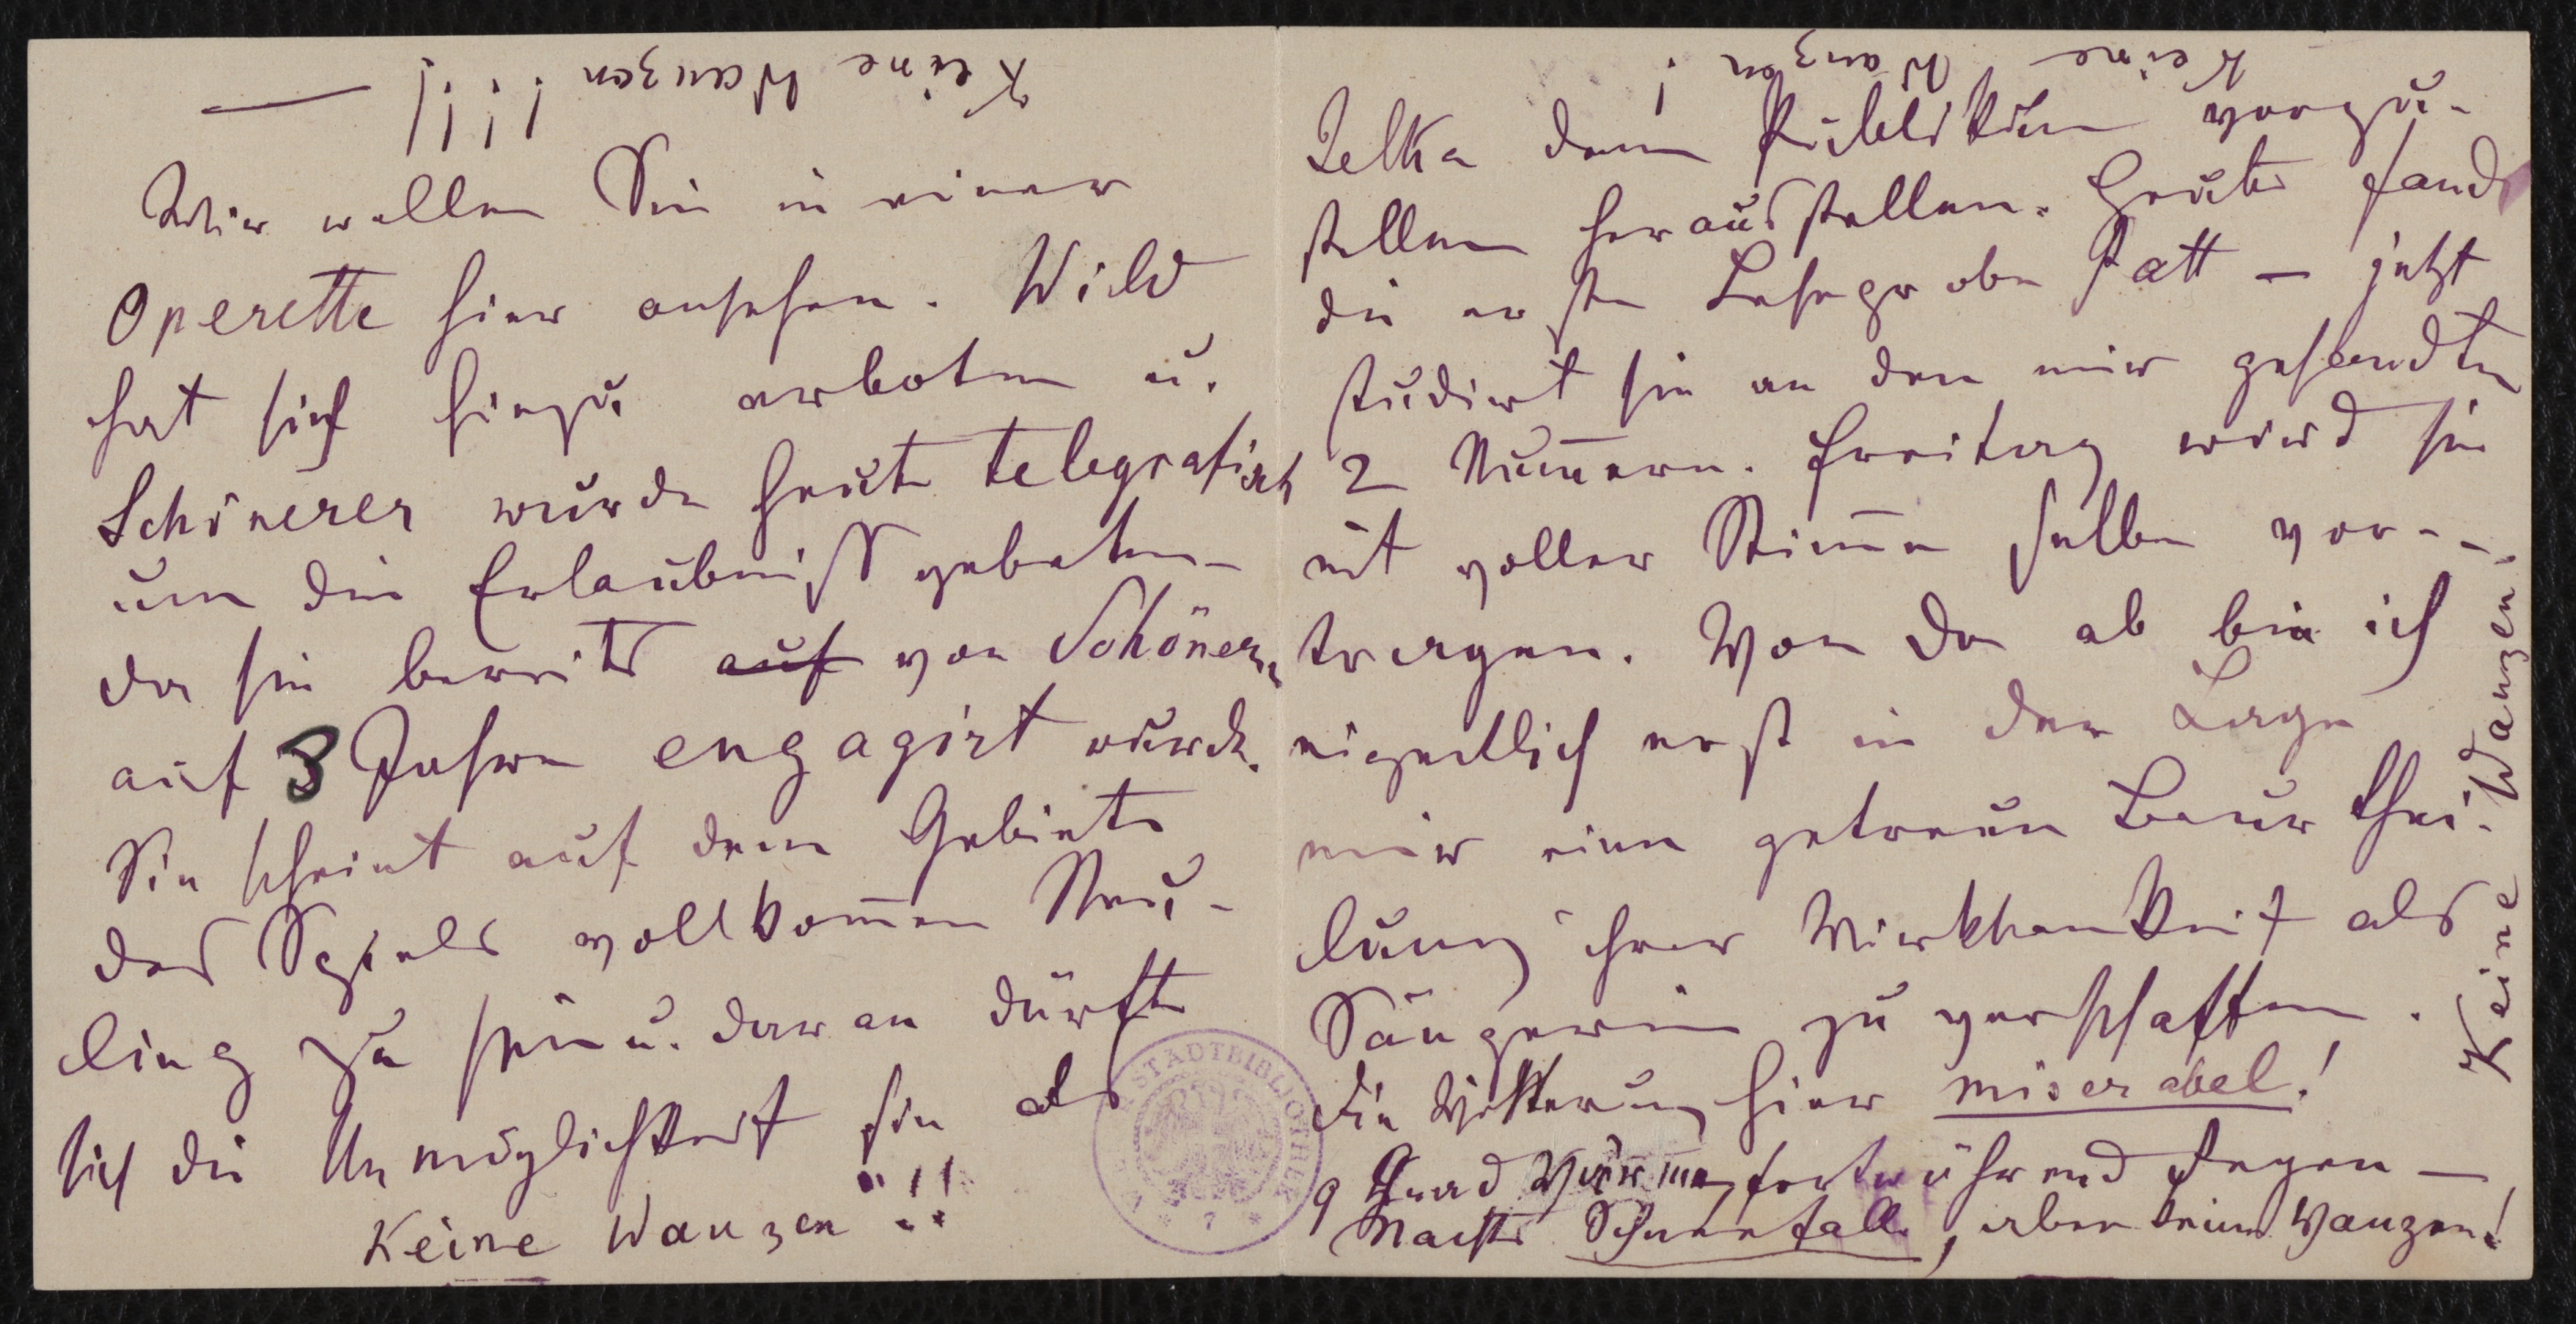 Keine Wanzen !!!! —
Wir wollen Sie in einer
Operette hier ansehen. Wild
hat sich hiezu erboten u.
Schönerer wurde heute telegrafisch
um die Erlaubniß gebeten –
da sie bereits auf von Schönerer
auf 3 Jahre engagirt wurde.
Sie scheint auf dem Gebiete
des Spiels vollkom̅en Neu-
ling zu sein u. daran dürfte
sich die Unmöglichkeit sie als
Keine Wanzen !!!
Keine Wanzen !
Jelka dem Publikum vorzu-
stellen herausstellen. Heute fand
die erste Leseprobe statt – jetzt
studirt sie an den mir gesandten
2 Num̅ern. Freitag wird sie
mit voller Stim̅e selbe vor-
tragen. Von da ab bin ich
eigentlich erst in der Lage
mir eine getreue Beurthei-
lung ihrer Wirksamkeit als
Sängerin zu verschaffen.
Die Witterung hier miserabel!
9 Grad Wärme, fortwährend Regen —
Nachts Schneefall, aber keine Wanzen!
Keine Wanzen!
STADTBIBLIOTHEK
* 7 *